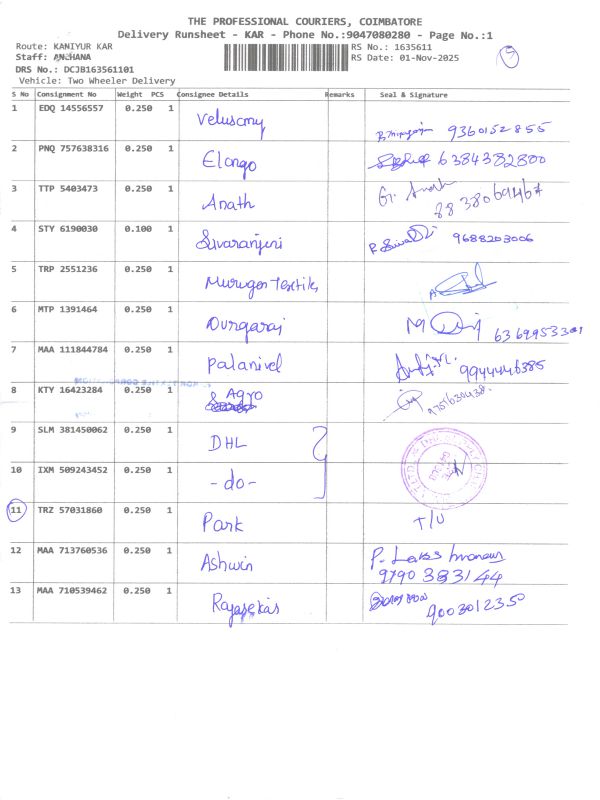 THE PROFESSIONAL COURIERS, COIMBATORE
Delivery Runsheet - KAR - Phone No.:9047080280 - Page No.:1
Route: KANIYUR KAR RS No.: 1635611
Staff: ANCHANA RS Date: 01-Nov-2025
DRS No.: DCJB163561101
Vehicle: Two Wheeler Delivery
S No Consignment No Weight PCS Consignee Details Remarks Seal & Signature
1 EDQ 14556557 0.250 1 Velusamy 9360152855
2 PNQ 757638316 0.250 1 Elango 6384382800
3 TTP 5403473 0.250 1 Anath G. Anath
8838069467
4 STY 6190030 0.100 1 Sivaranjini 9688203006
5 TRP 2551236 0.250 1 Murugan Textiles
6 MTP 1391464 0.250 1 Durgaraj
7 MAA 111844784 0.250 1 Palanivel 9944446385
8 KTY 16423284 0.250 1 Agro 9751630438
9 SLM 381450062 0.250 1 DHL
10 IXM 509243452 0.250 1 -do-
11 TRZ 57031860 0.250 1 Park T/U
12 MAA 713760536 0.250 1 Ashwin
9790383144
13 MAA 710539462 0.250 1 Rajasekar 900301235